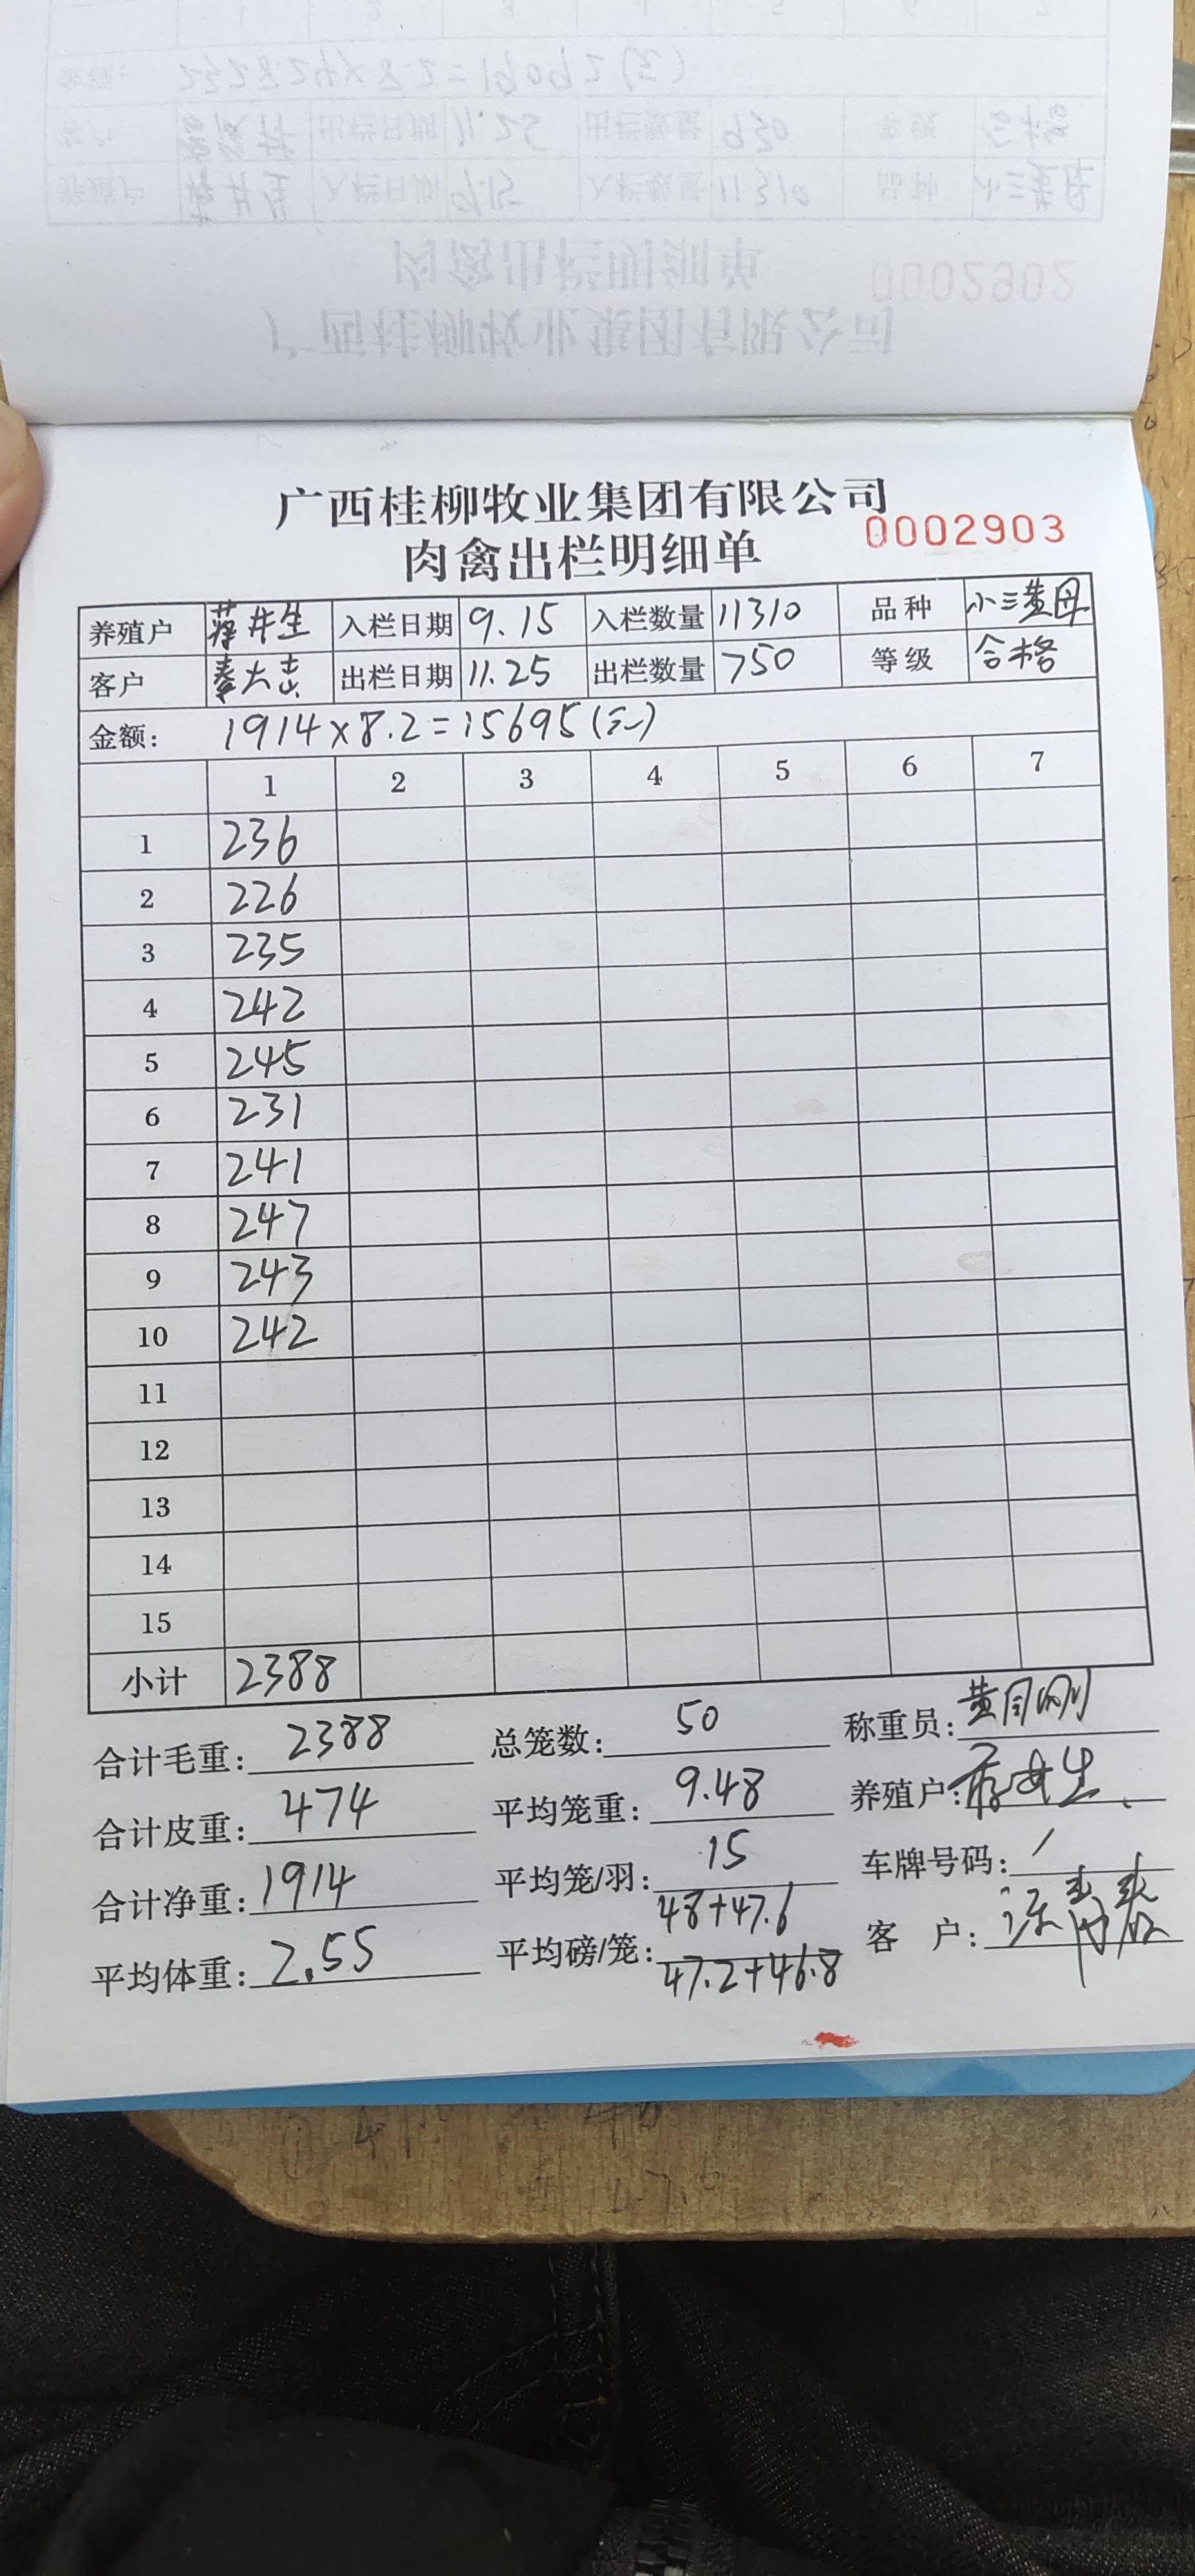 广西桂柳牧业集团有限公司
肉禽出栏明细单 0002903
养殖户 蒋井生 入栏日期 9.15 入栏数量 11310 品种 小三黄母
客户 秦大志 出栏日期 11.25 出栏数量 750 等级 合格
金额: 1914×8.2=15695(元)
1 2 3 4 5 6 7
1 236
2 226
3 235
4 242
5 245
6 231
7 241
8 247
9 243
10 242
11
12
13
14
15
小计 2388
合计毛重: 2388 总笼数: 50 称重员:
合计皮重: 474 平均笼重: 9.48 养殖户:
合计净重: 1914 平均笼/羽: 15 车牌号码: /
平均体重: 2.55 平均磅/笼: 48+47.6 客 户:
47.2+46.8